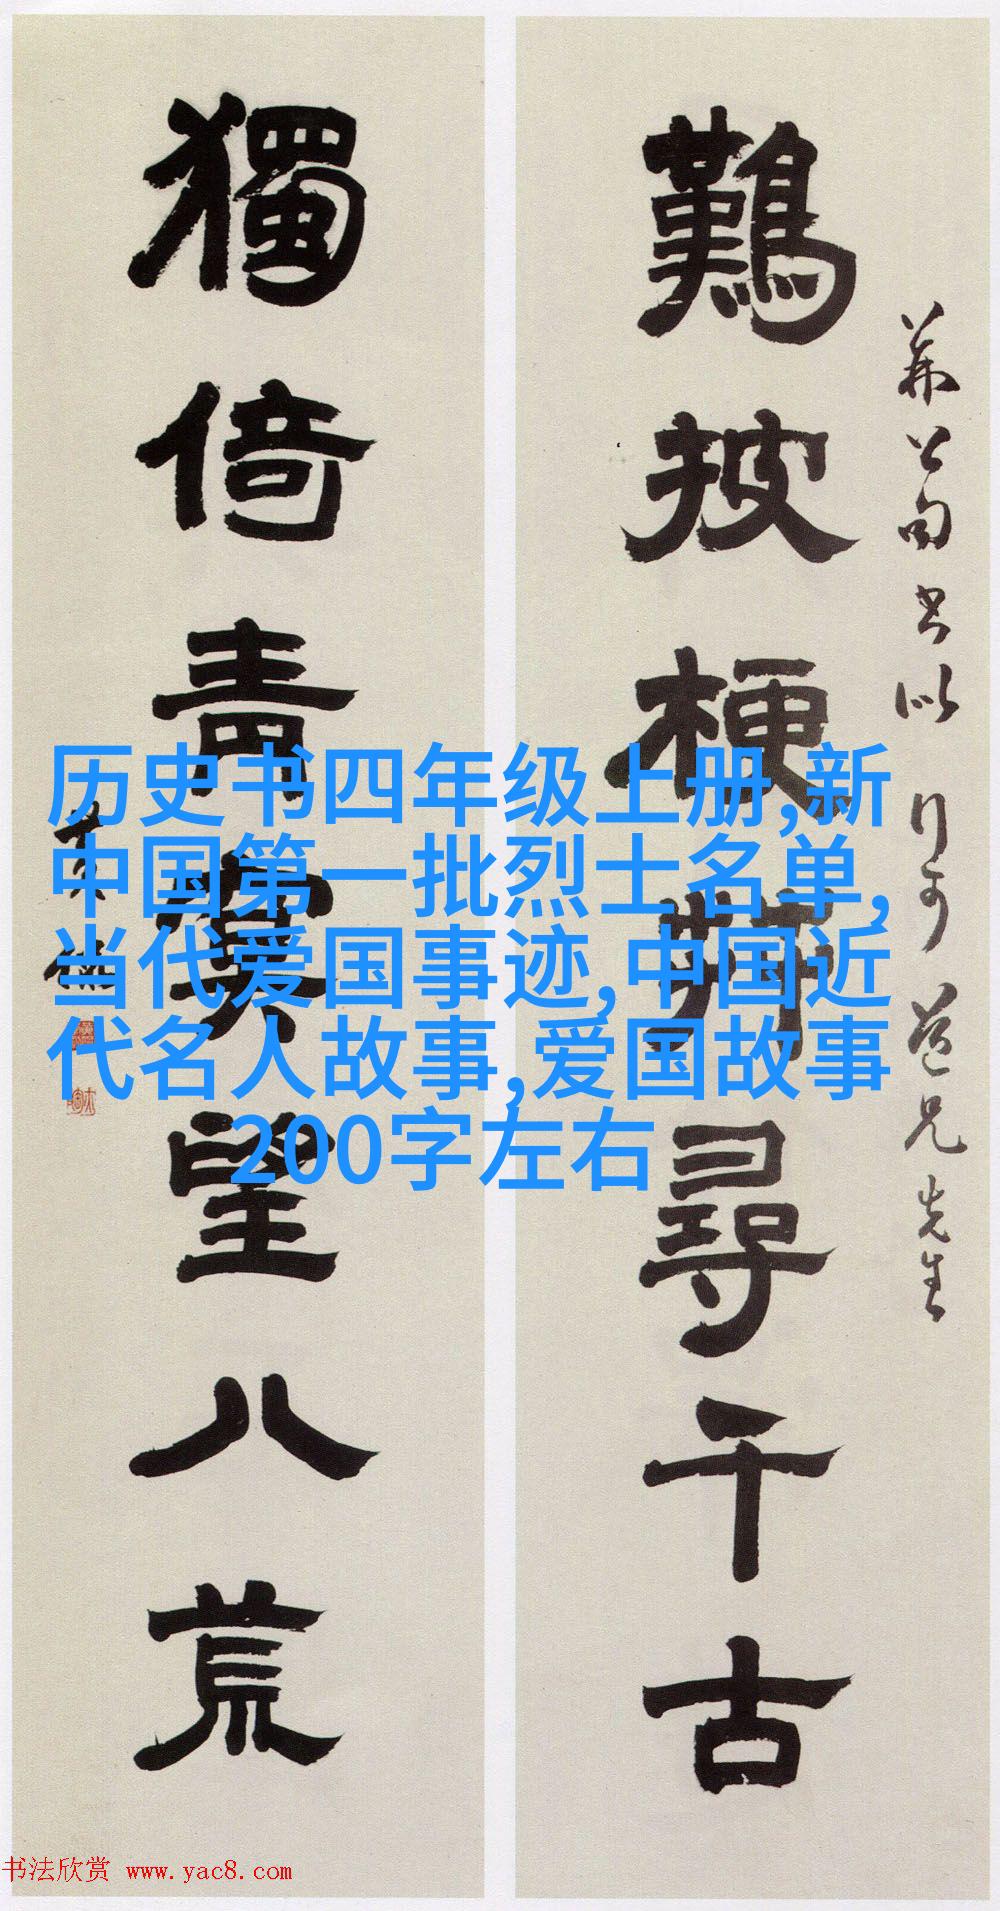 難披梗莽尋千古
公句书以 行可 道兄先生
獨倚青冥望八荒
历史书四年级上册,新
中国第一批烈士名单,
当代爱国事迹,中国近
代名人故事,爱国故事
200字左右
书法欣赏 www.yac8.com